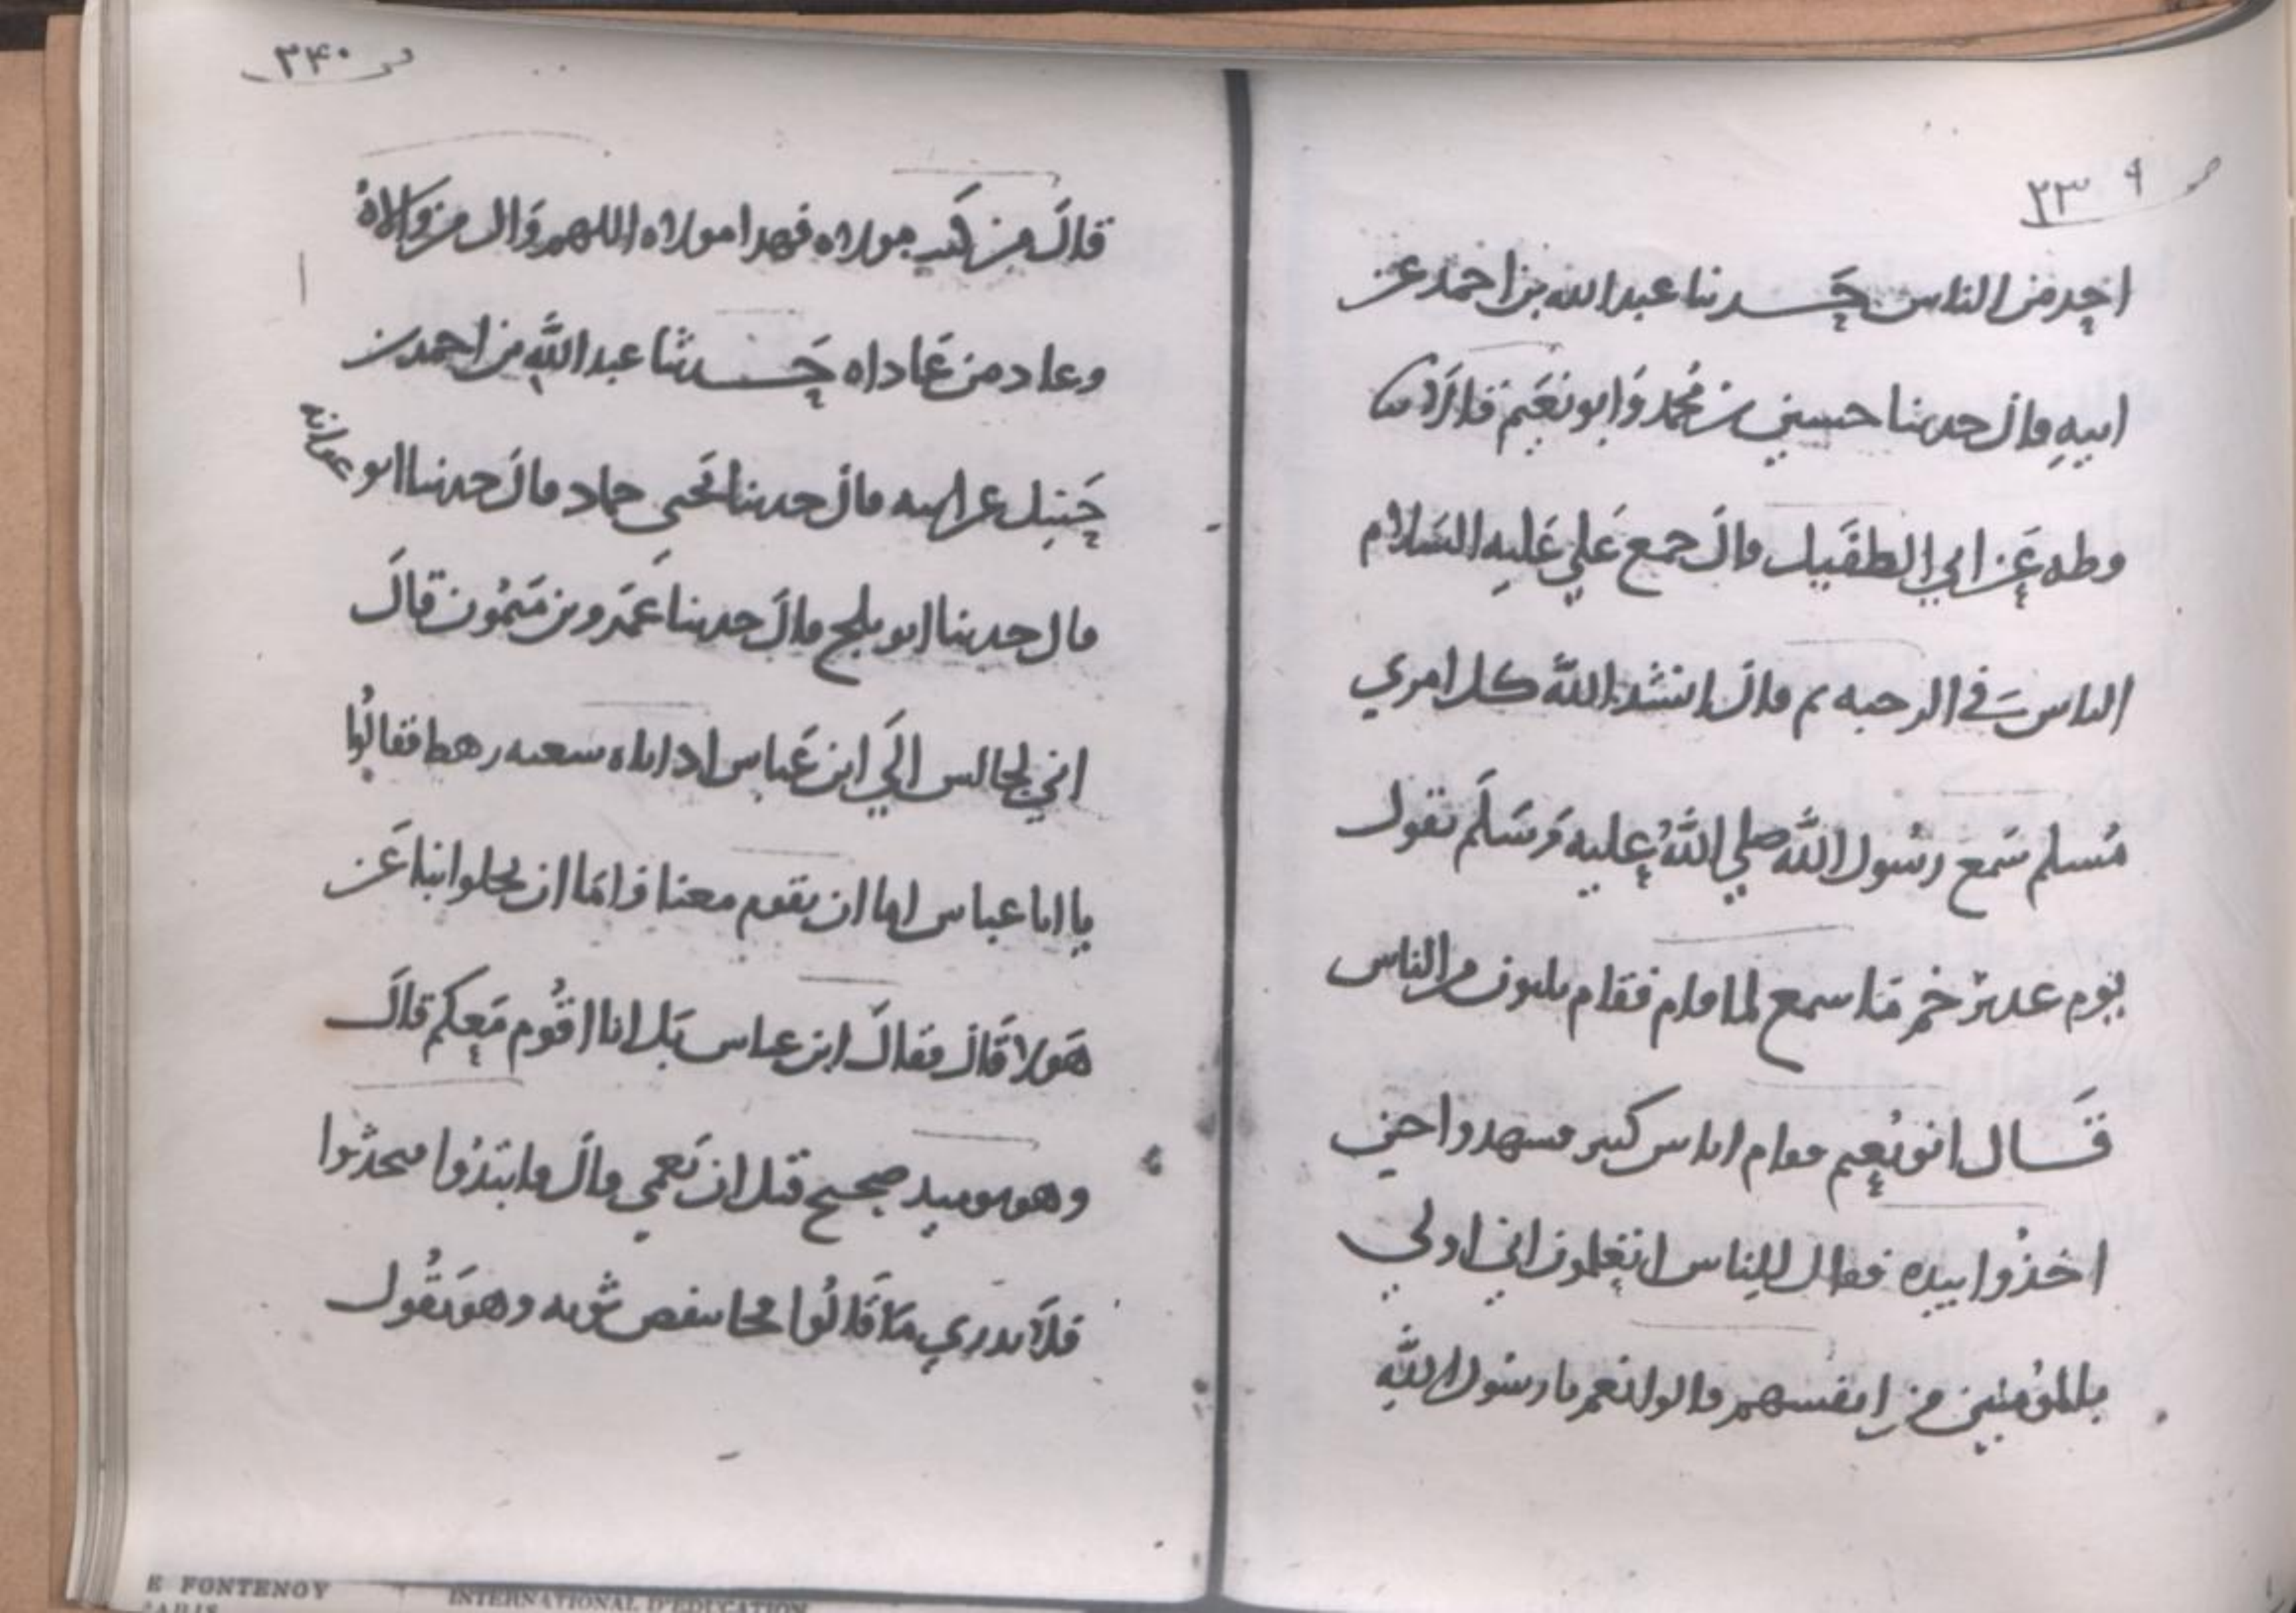 ص ٢٣٩
احد من الناس حدثنا عبد الله بن احمد عن
ابيه قال حدثنا حسين بن محمد وابو نعيم قالا ثنا
وطه عن ابي الطفيل قال جمع علي عليه السلام
الناس في الرحبه ثم قال انشد الله كل امري
مسلم سمع رسول الله صلي الله عليه وسلم يقول
يوم غدير خم ما سمع لما قام فقام ثلثون من الناس
قال ابو نعيم فقام اناس كثير فشهدوا حين
اخذوا بيده فقال للناس اتعلمون اني اولي
بالمؤمنين من انفسهم قالوا نعم يا رسول الله
ص ٢٤٠
قال من كنت مولاه فهذا مولاه اللهم وال من والاه
وعاد من عاداه حدثنا عبد الله بن احمد بن
حنبل عن ابيه قال حدثنا يحيى حماد قال حدثنا ابو عوانه
قال حدثنا ابو بلج قال حدثنا عمرو بن ميمون قال
اني لجالس الي ابن عباس اذ اتاه تسعه رهط فقالوا
يا ابا عباس اما ان تقوم معنا واما ان تخلوا بنا عن
هولا قال فقال ابن عباس بل انا اقوم معكم قال
وهو يوميذ صحيح قبل ان يعمي قال فابتدوا فتحدثوا
فلا ندري ما قالوا فجا ينفض ثوبه وهو يقول
E FONTENOY
PARIS
INTERNATIONAL D'EDUCATION